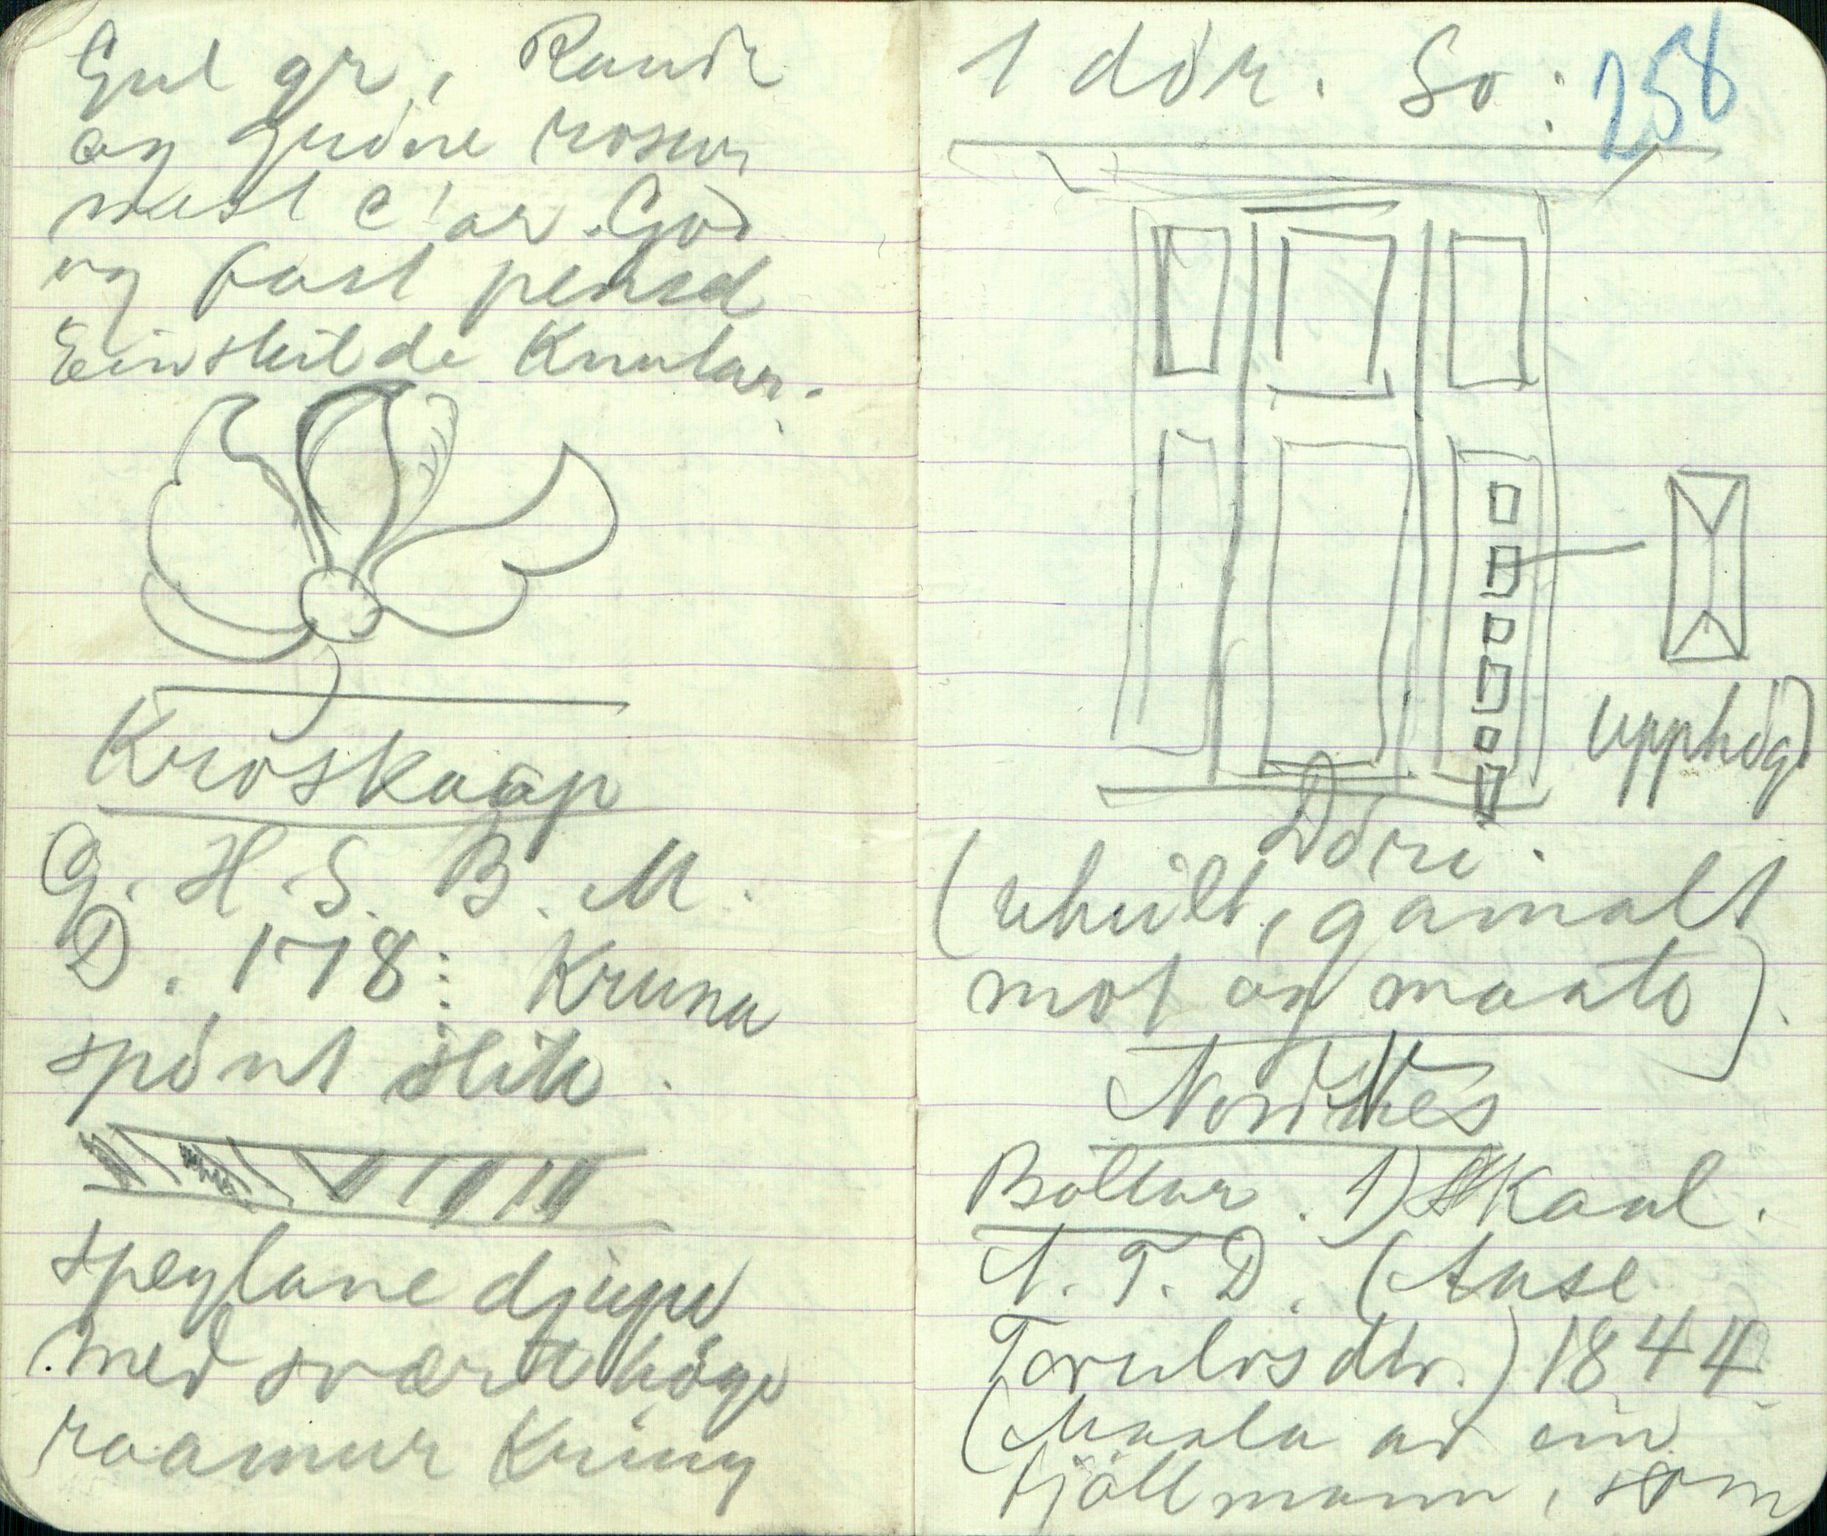 Gul gr, Raude
og grøne rosur,
mest c'ar. God
og fast pensel
Einskilde Knutar.
Krøskaap
G. H. S. B. M.
D. 178: Kruna
spönt slik.
speglane djupe
med svært høge
raamur kring
1 dör. So: 258
upphøgd
Döri.
(uhuilt, gamalt
mot og maato).
Nordnes
Bollur. 1) Skaal.
A. T. D. (Aase
Torulvsdtr.) 1844
(Maala av ein
fjöllmann, som